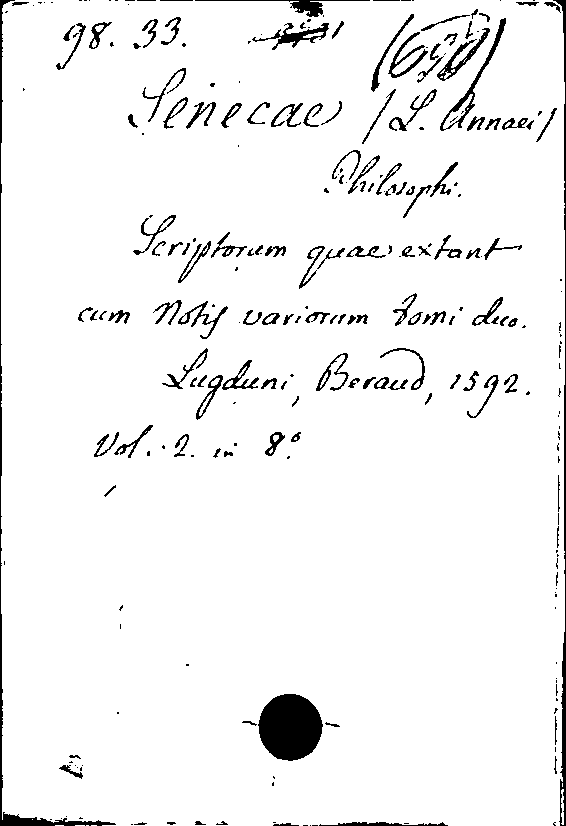 98. 33.
Senecae /L. Annaei/
Philosophi.
Scriptorum quae extant
cum Notis variorum tomi duo.
Lugduni, Beraud, 1592.
Vol. 2. in 8.º